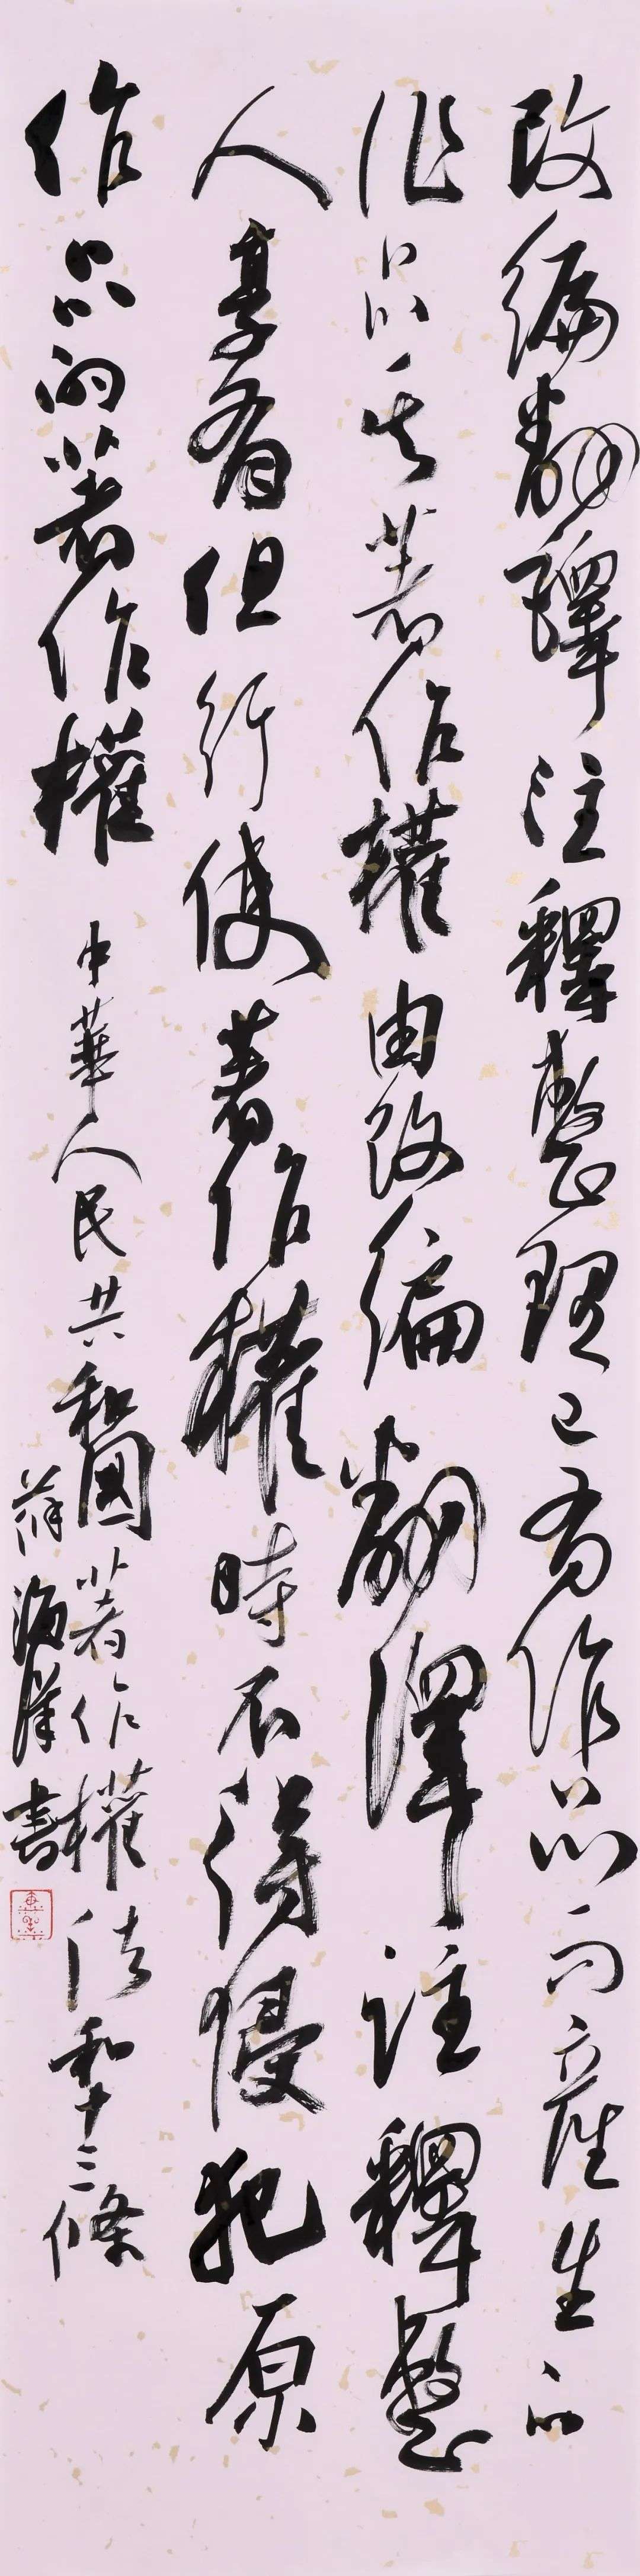 改編翻譯注釋整理已有作品而産生的
作品其著作權由改編翻譯註釋整
人享有但行使著作權時不得侵犯原
作品的著作權
中華人民共和國著作權法第十三條
薛海書